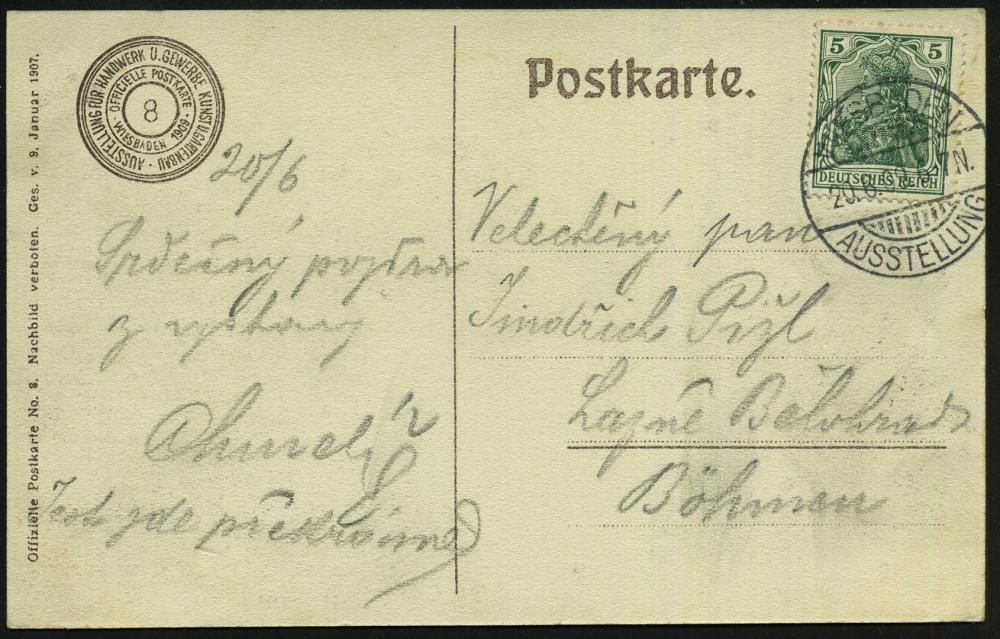 Offizielle Postkarte No. 8. Nachbild verboten. Ges. v. 9. Januar 1907.
AUSSTELLUNG FÜR HANDWERK U. GEWERBE KUNST U. GARTENBAU
OFFICIELLE POSTKARTE
WIESBADEN 1909
8
20/6
Srdečný pozdrav
z výstavy
Jest zde překrásně
Postkarte.
5 5
DEUTSCHES REICH
WIESBADEN
20.6.09. 6-7N.
AUSSTELLUNG
Velectěný pan
Jindřich
Lázně Bělohrad
Böhmen